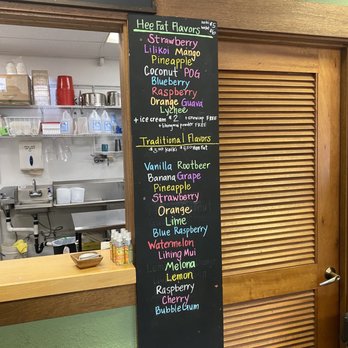 Hee Fat Flavors
Strawberry
Lilikoi Mango
Pineapple
Coconut POG
Blueberry
Raspberry
Orange Guava
Lychee
+ ice cream $2 + FREE
+ li hing mui powder FREE
Traditional Flavors
Vanilla Rootbeer
Banana Grape
Pineapple
Strawberry
Orange
Lime
Blue Raspberry
Watermelon
Lihing Mui
Melona
Lemon
Raspberry
Cherry
BubbleGum